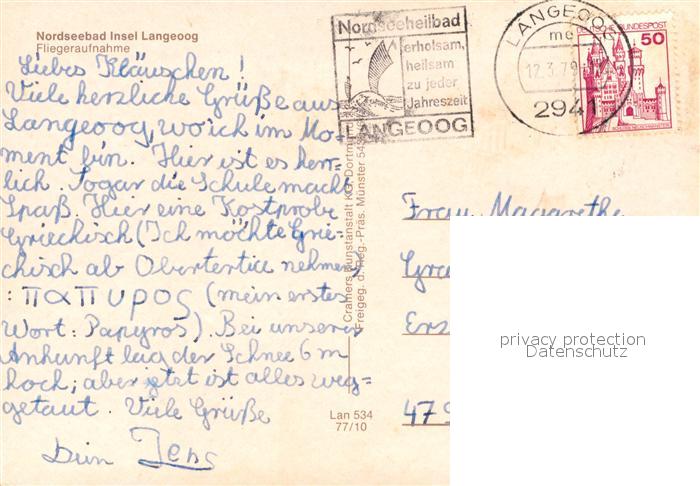 Nordseebad Insel Langeoog
Fliegeraufnahme
Liebes Kläuschen!
Viele herzliche Grüße aus
Langeoog, wo ich im Mo-
ment bin. Hier ist es herr-
lich. Sogar die Schule macht
Spaß. Hier eine Kostprobe
Griechisch (Ich möchte Grie-
chisch ab Obertertia nehmen)
: παπυρος (mein erstes
Wort: Papyros). Bei unserer
Ankunft lag der Schnee 6 m
hoch; aber jetzt ist alles weg=
getaut. Viele Grüße
Dein Jens
Nordseeheilbad
erholsam,
heilsam
zu jeder
Jahreszeit
LANGEOOG
LANGEOOG
me
12.3.79
2941
DEUTSCHE BUNDESPOST
50
Cramers Kunstanstalt KG, Dortmund
Freigeg. d. Reg.-Präs. Münster
Lan 534
77/10
Frau Magarethe
47
privacy protection
Datenschutz